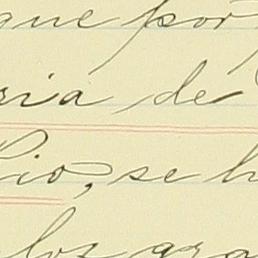 que por
ria de
cio, se h
los gra